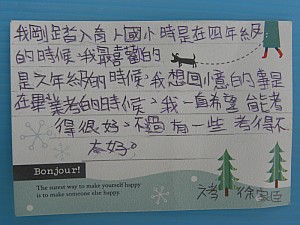 我剛踏入南人國小時是在四年級
的時候,我最喜歡的
是六年級的時候,我想回小意的事是
在畢業考的時候,我一直希望能考
得很好。不過有一些考得不
太好。
Bonjour!
The surest way to make yourself happy
is to make someone else happy.
六孝 徐家臣